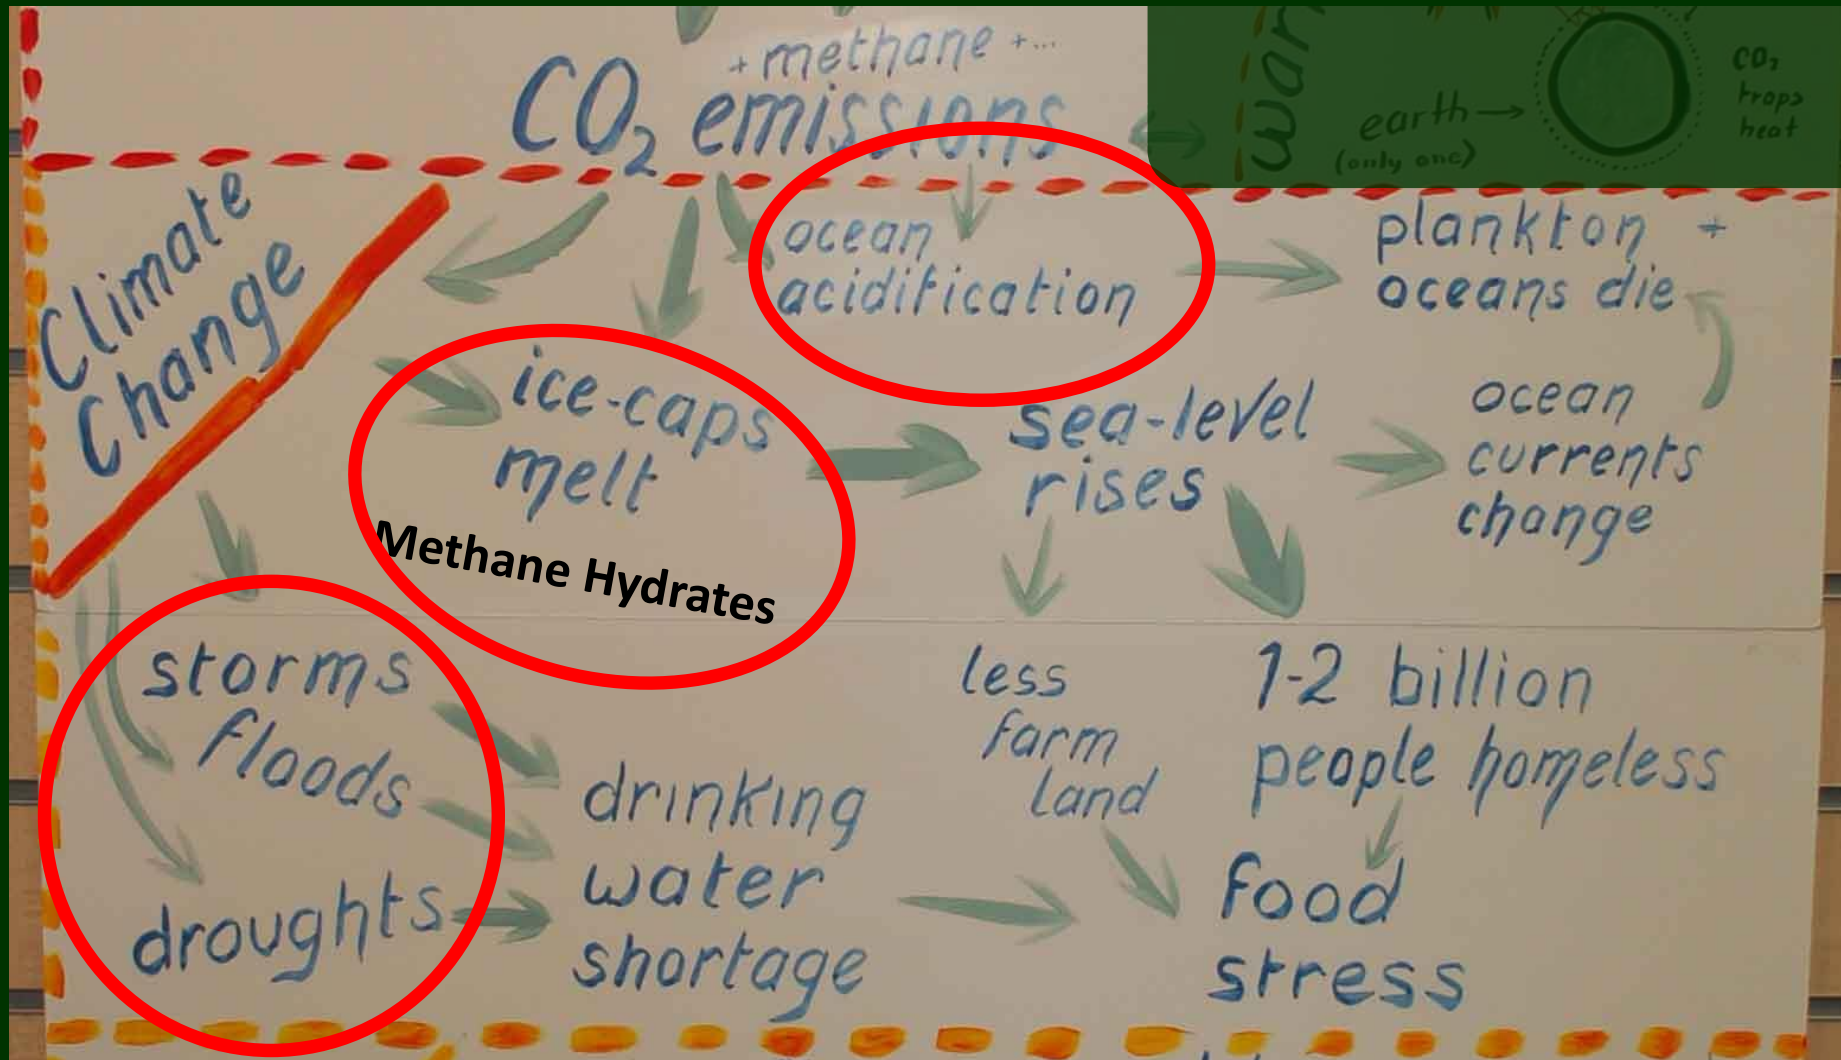 + methane +...
CO₂ emissions
war
earth
(only one)
CO₂
traps
heat
Climate
Change
ocean
acidification
plankton +
oceans die
ice-caps
melt
Methane Hydrates
sea-level
rises
ocean
currents
change
storms
floods
droughts
drinking
water
shortage
less
farm
land
1-2 billion
people homeless
food
stress